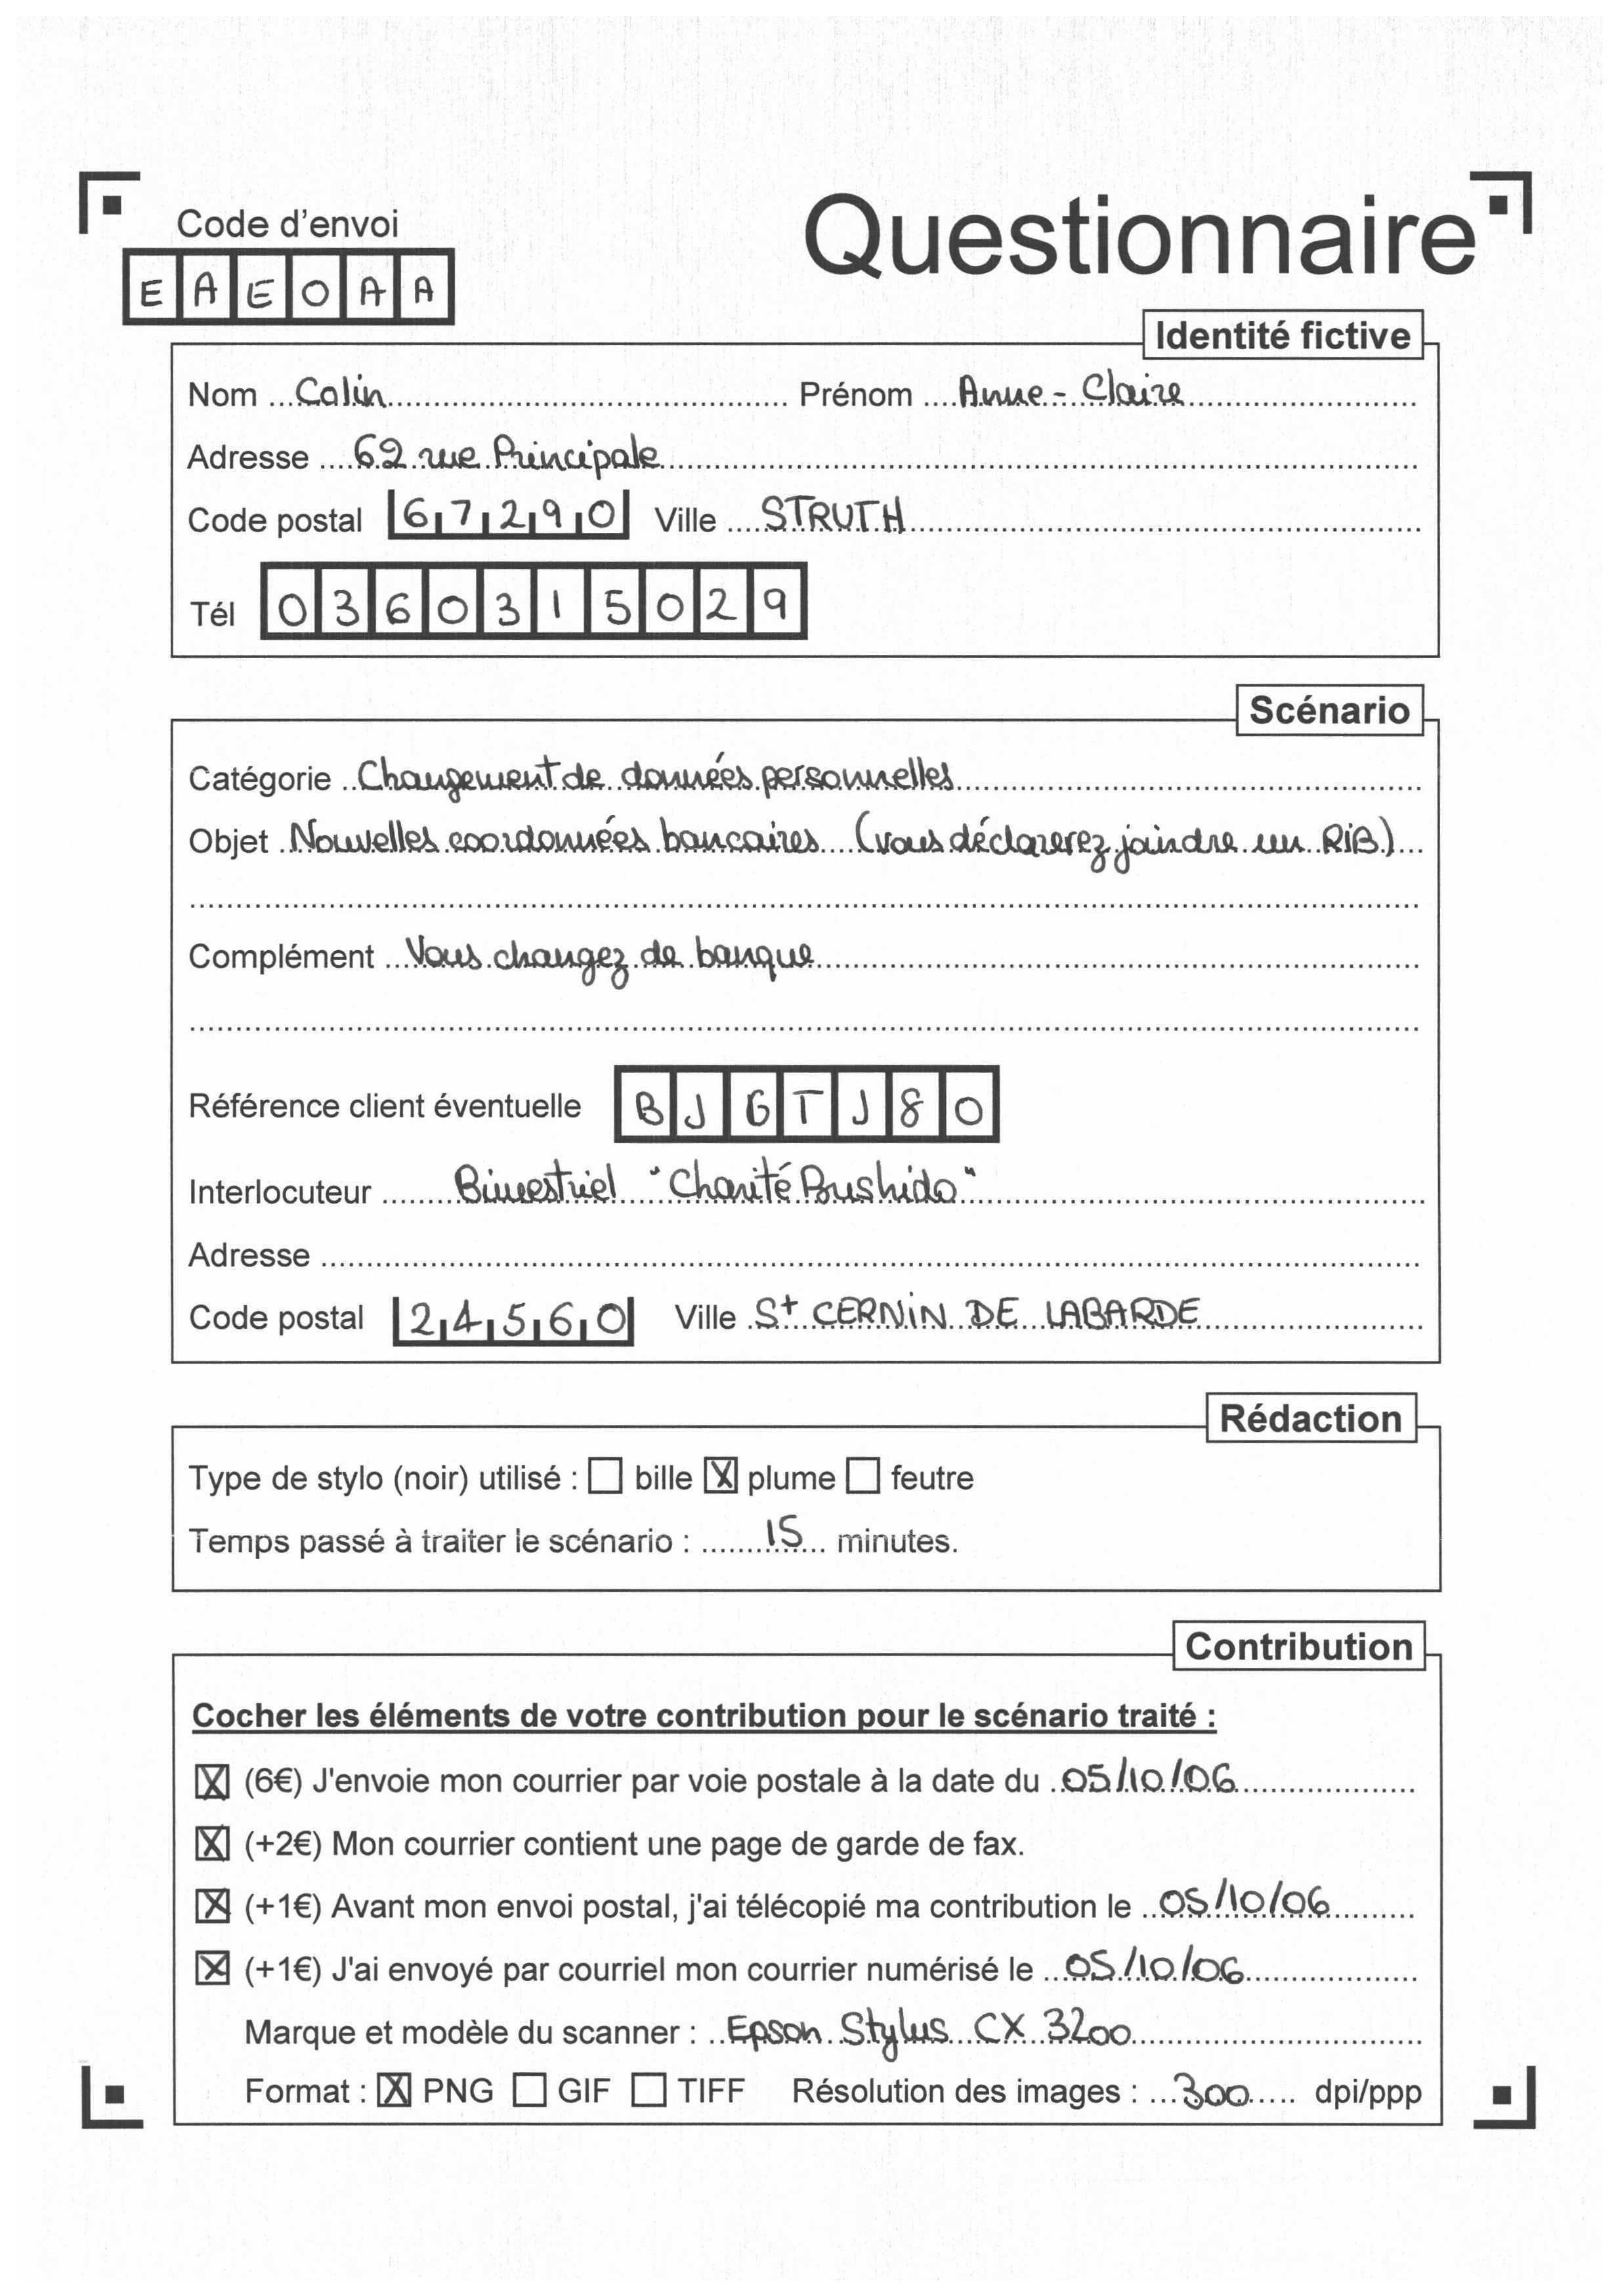 Code d'envoi
EAEOAA
Questionnaire
Identité fictive
Nom Colin Prénom Anne-Claire
Adresse 62 rue Principale
Code postal 67290 Ville STRUTH
Tél 0360315029
Scénario
Catégorie Changement de données personnelles
Objet Nouvelles coordonnées bancaires (vous déclarerez joindre un RIB)
Complément Vous changez de banque
Référence client éventuelle BJGTJ80
Interlocuteur Bimestriel "Charité Bushido"
Adresse
Code postal 24560 Ville St CERNIN DE LABARDE
Rédaction
Type de stylo (noir) utilisé : ☐ bille ☒ plume ☐ feutre
Temps passé à traiter le scénario : 15 minutes.
Contribution
Cocher les éléments de votre contribution pour le scénario traité :
☒ (6€) J'envoie mon courrier par voie postale à la date du 05/10/06
☒ (+2€) Mon courrier contient une page de garde de fax.
☒ (+1€) Avant mon envoi postal, j'ai télécopié ma contribution le 05/10/06
☒ (+1€) J'ai envoyé par courriel mon courrier numérisé le 05/10/06
Marque et modèle du scanner : Epson Stylus CX 3200
Format : ☒ PNG ☐ GIF ☐ TIFF Résolution des images : 300 dpi/ppp